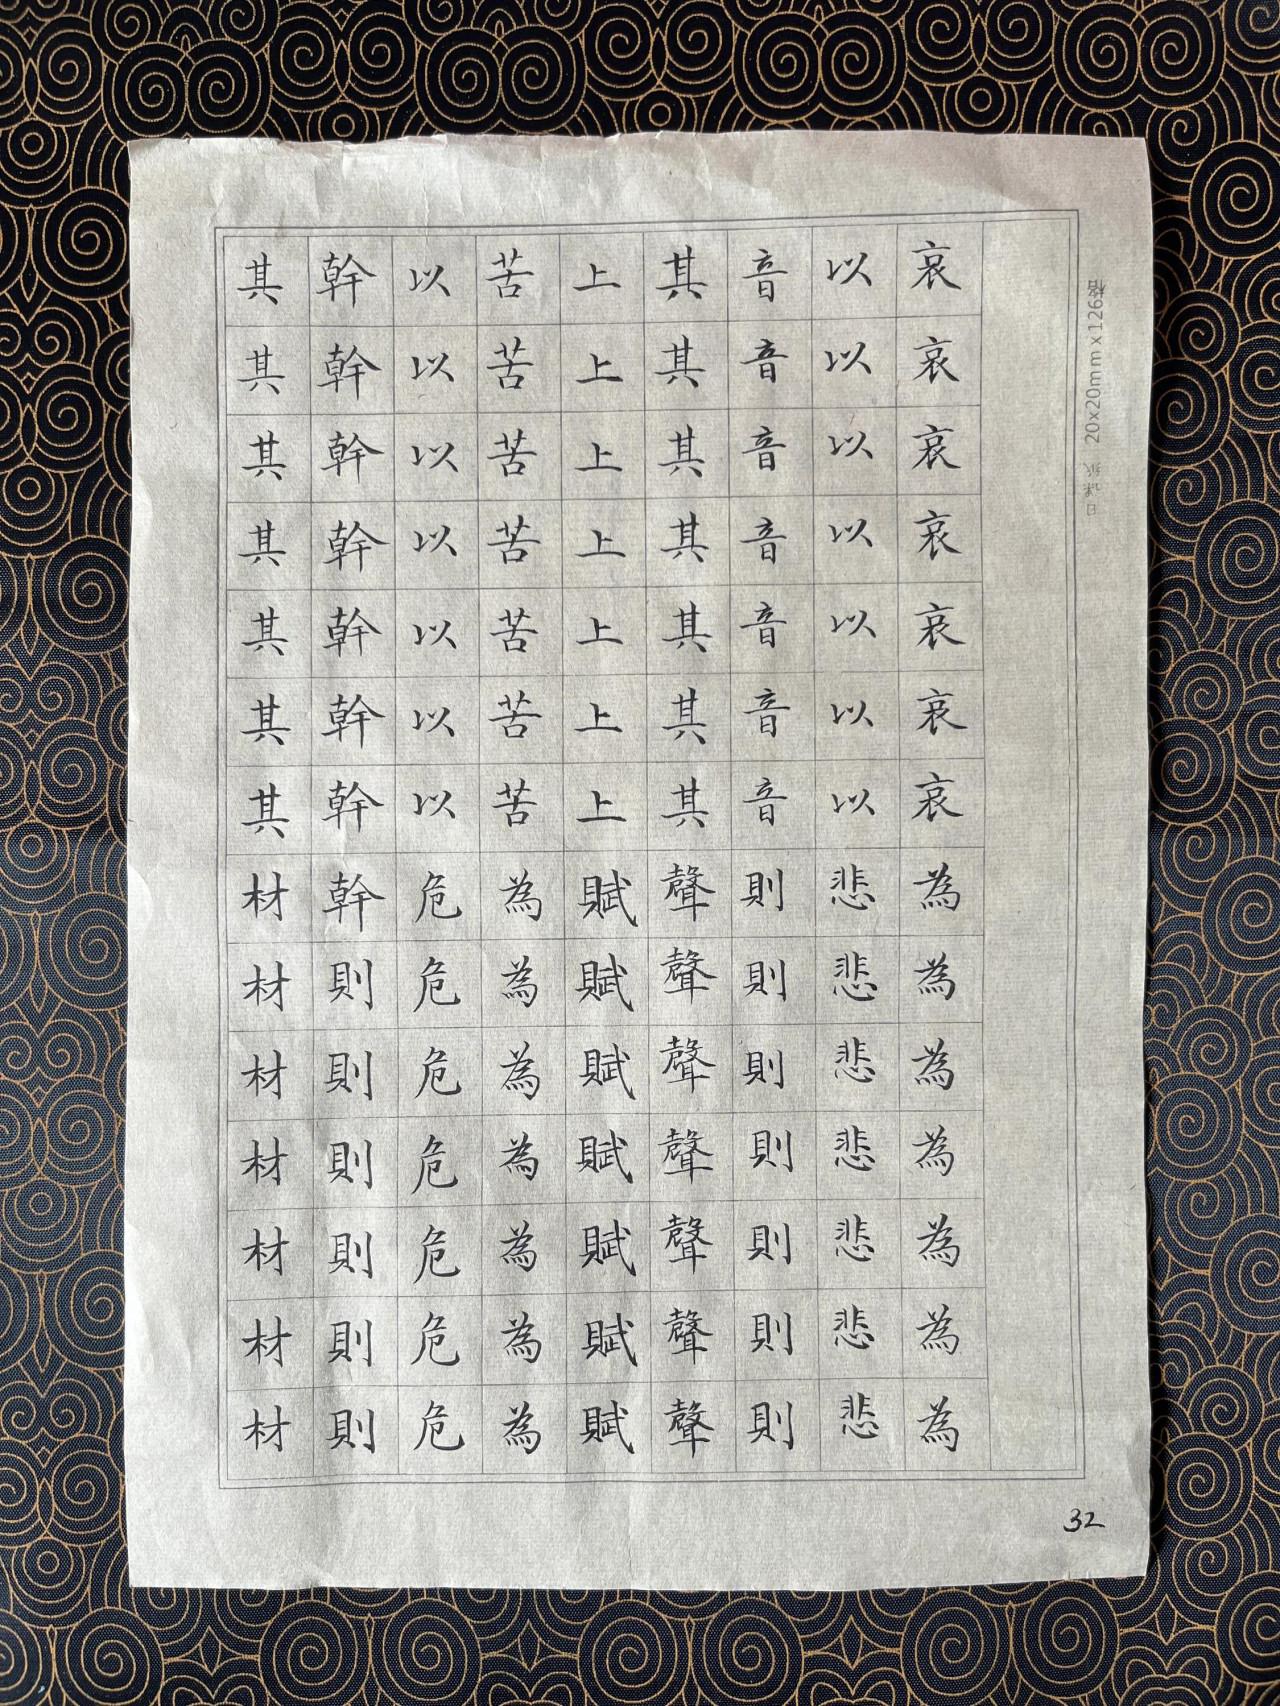 其其其其其其其材材材材材材材
幹幹幹幹幹幹幹幹則則則則則則
以以以以以以以危危危危危危危
苦苦苦苦苦苦苦為為為為為為為
上上上上上上上賦賦賦賦賦賦賦
其其其其其其其聲聲聲聲聲聲聲
音音音音音音音則則則則則則則
以以以以以以以悲悲悲悲悲悲悲
哀哀哀哀哀哀哀為為為為為為為
20x20mm x126格
32